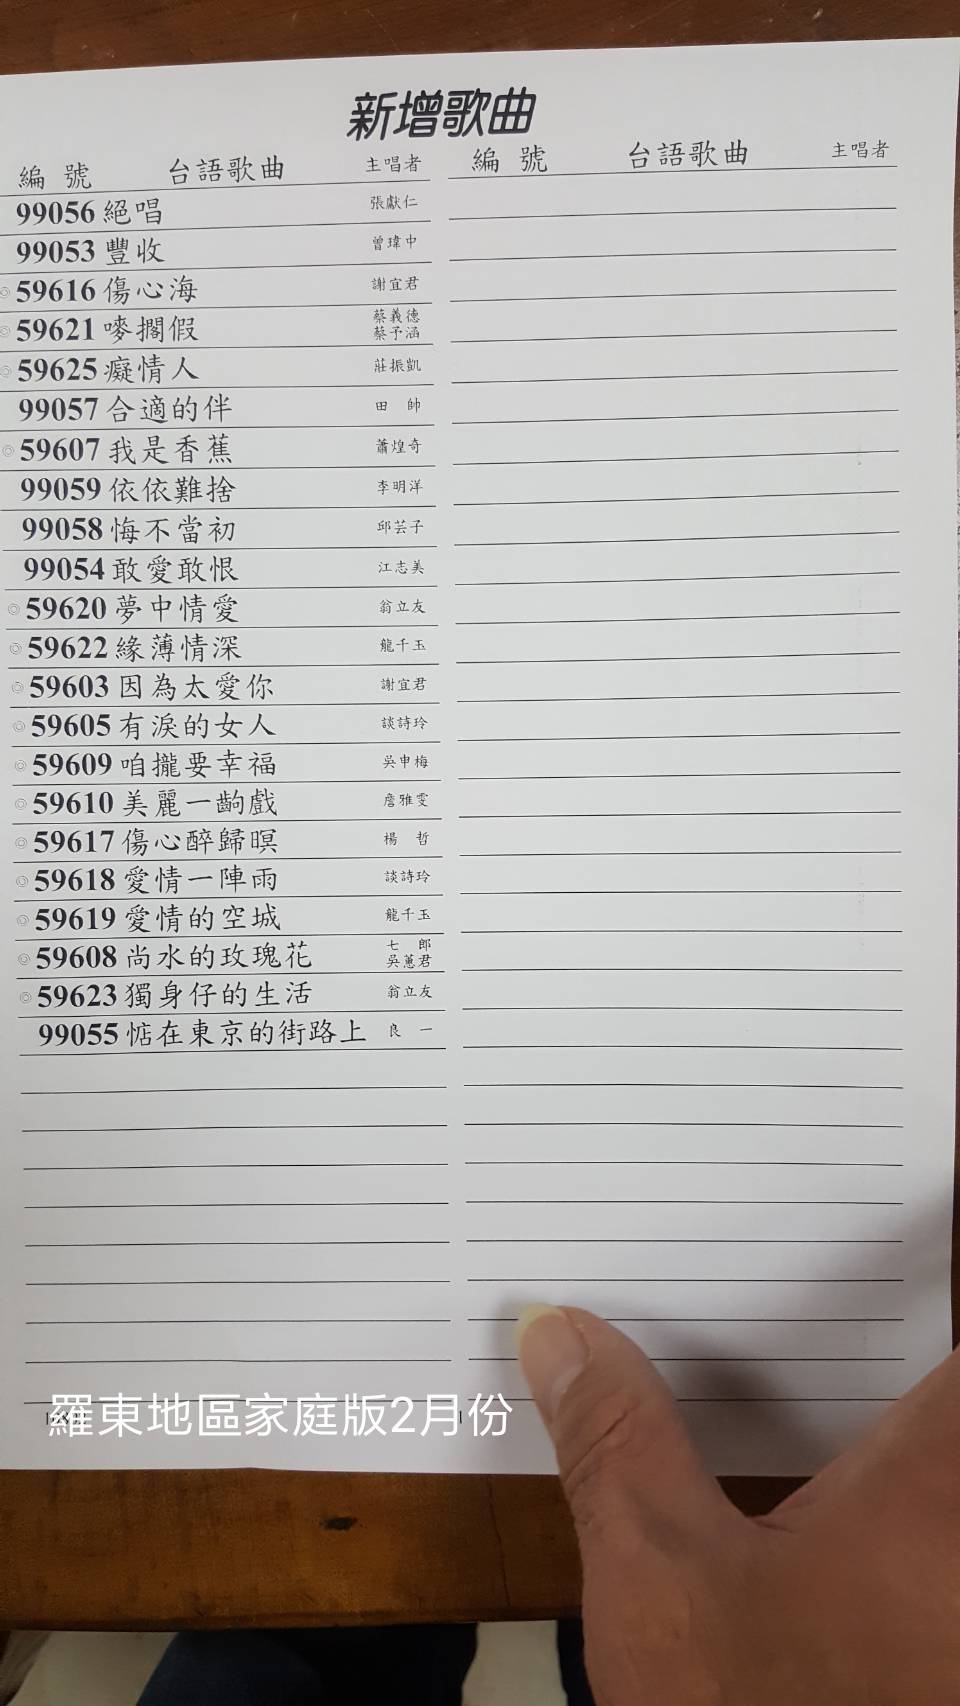 新增歌曲
編號 台語歌曲 主唱者 編號 台語歌曲 主唱者
99056 絕唱 張獻仁
99053 豐收 曾瑋中
◎59616 傷心海 謝宜君
◎59621 嘜擱假 蔡義德 蔡予涵
◎59625 癡情人 莊振凱
99057 合適的伴 田帥
◎59607 我是香蕉 蕭煌奇
99059 依依難捨 李明洋
99058 悔不當初 邱芸子
99054 敢愛敢恨 江志美
◎59620 夢中情愛 翁立友
◎59622 緣薄情深 龍千玉
◎59603 因為太愛你 謝宜君
◎59605 有淚的女人 談詩玲
◎59609 咱攏要幸福 吳申梅
◎59610 美麗一齣戲 詹雅雯
◎59617 傷心醉歸暝 楊哲
◎59618 愛情一陣雨 談詩玲
◎59619 愛情的空城 龍千玉
◎59608 尚水的玫瑰花 七郎 吳蕙君
◎59623 獨身仔的生活 翁立友
99055 惦在東京的街路上 良一
羅東地區家庭版2月份